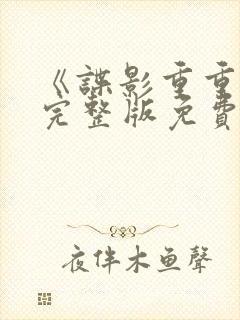 《諜影重重
完整版免費
夜伴木鱼聲